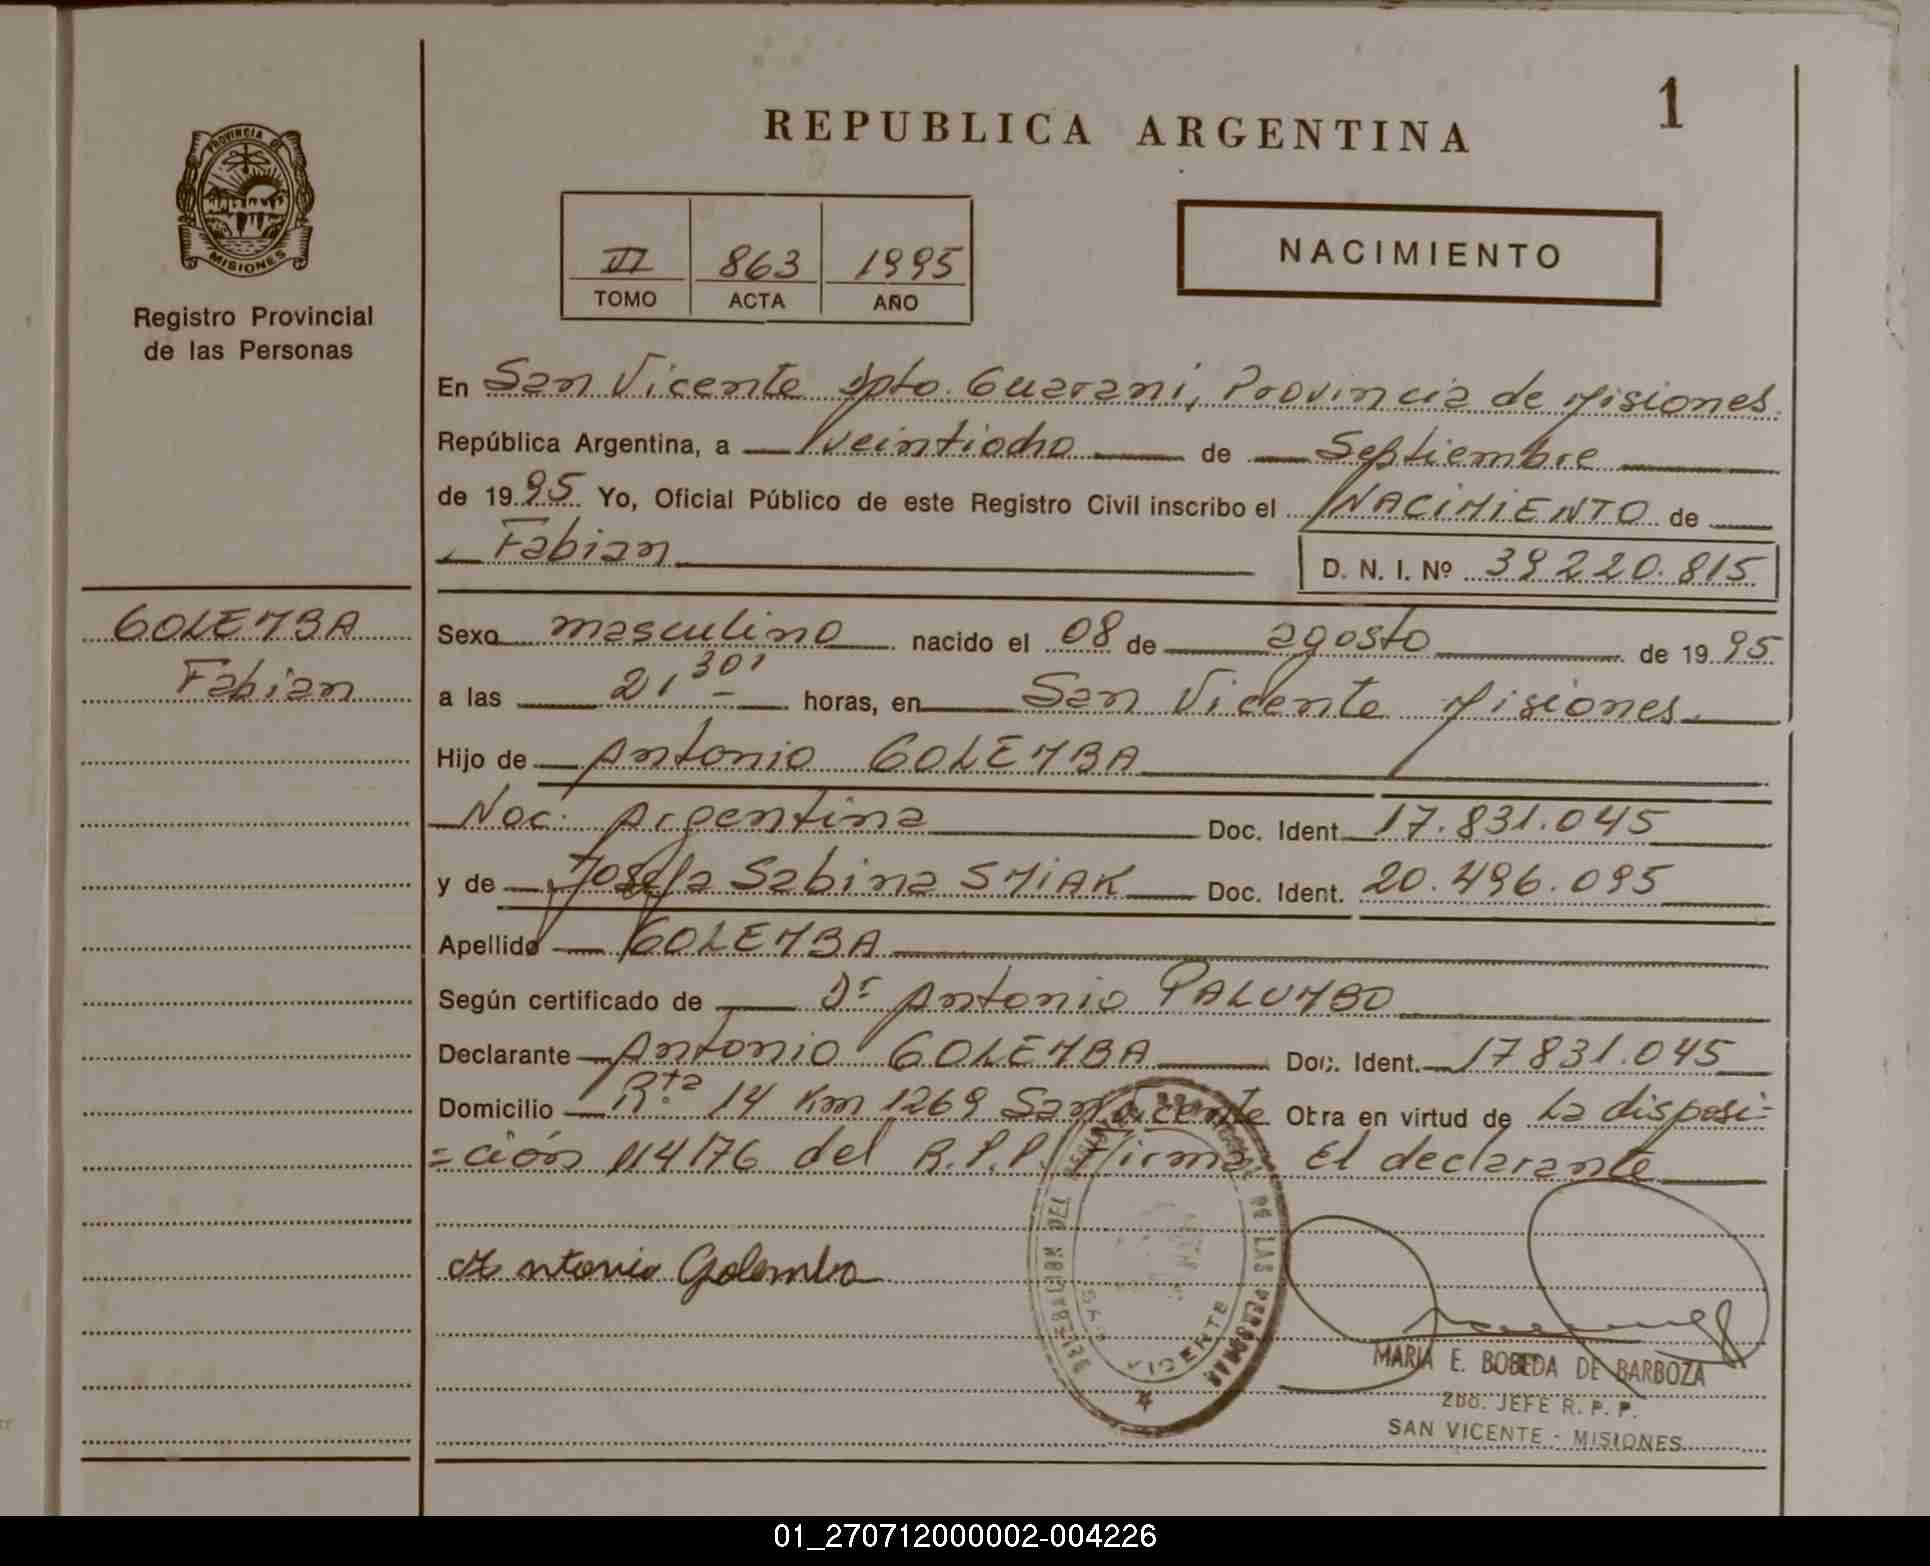 REPUBLICA ARGENTINA
1
PROVINCIA DE
MISIONES
Registro Provincial
de las Personas
VI 863 1995
TOMO ACTA AÑO
NACIMIENTO
En San Vicente Dpto. Guarani, Provincia de Misiones
República Argentina, a veintiocho de Septiembre
de 1995 Yo, Oficial Público de este Registro Civil inscribo el NACIMIENTO de
Fabian
D. N. I. Nº 39220.815
GOLEMBA
Fabian
Sexo masculino nacido el 08 de agosto de 1995
a las 21,30' horas, en San Vicente Misiones
Hijo de Antonio GOLEMBA
Nac. Argentina Doc. Ident. 17.831.045
y de Josefa Sabina SMIAK Doc. Ident. 20.496.095
Apellido GOLEMBA
Según certificado de Dr Antonio PALUMBO
Declarante Antonio GOLEMBA Doc. Ident. 17831.045
Domicilio Rta 14 Km 1269 San Vicente Obra en virtud de la disposi=
=ción 114/76 del R.P.P. Firma El declarante
Antonio Golemba
DELEGACION DEL REGISTRO PROVINCIAL DE LAS PERSONAS
SAN VICENTE
MARIA E. BOBEDA DE BARBOZA
2DO. JEFE R. P. P.
SAN VICENTE - MISIONES
01_270712000002-004226